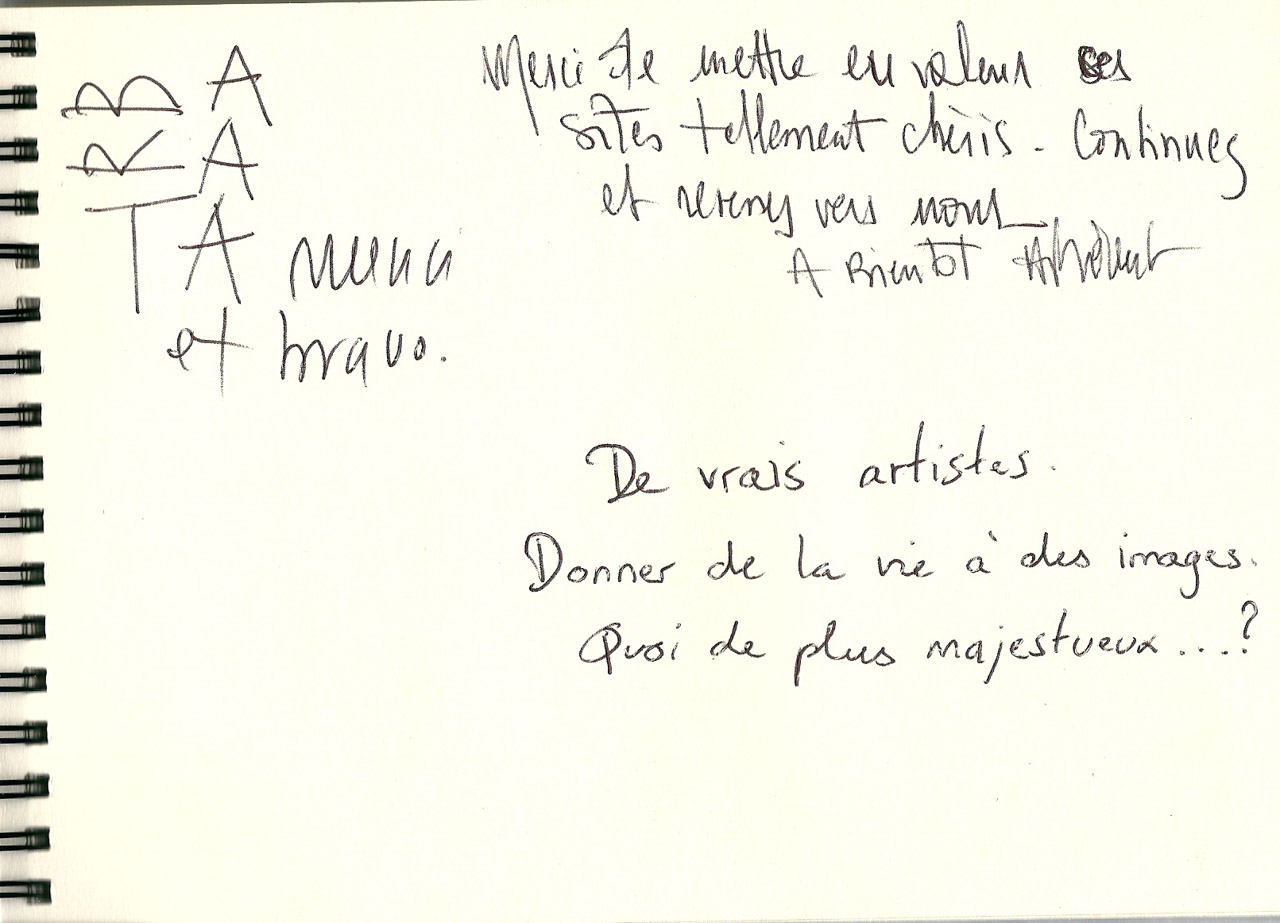 BA
RA
TA merci
et bravo.
Merci de mettre en valeur ces
sites tellement chéris. Continuez
et revenez vers nous
A Bientôt
De vrais artistes.
Donner de la vie à des images.
Quoi de plus majestueux....?